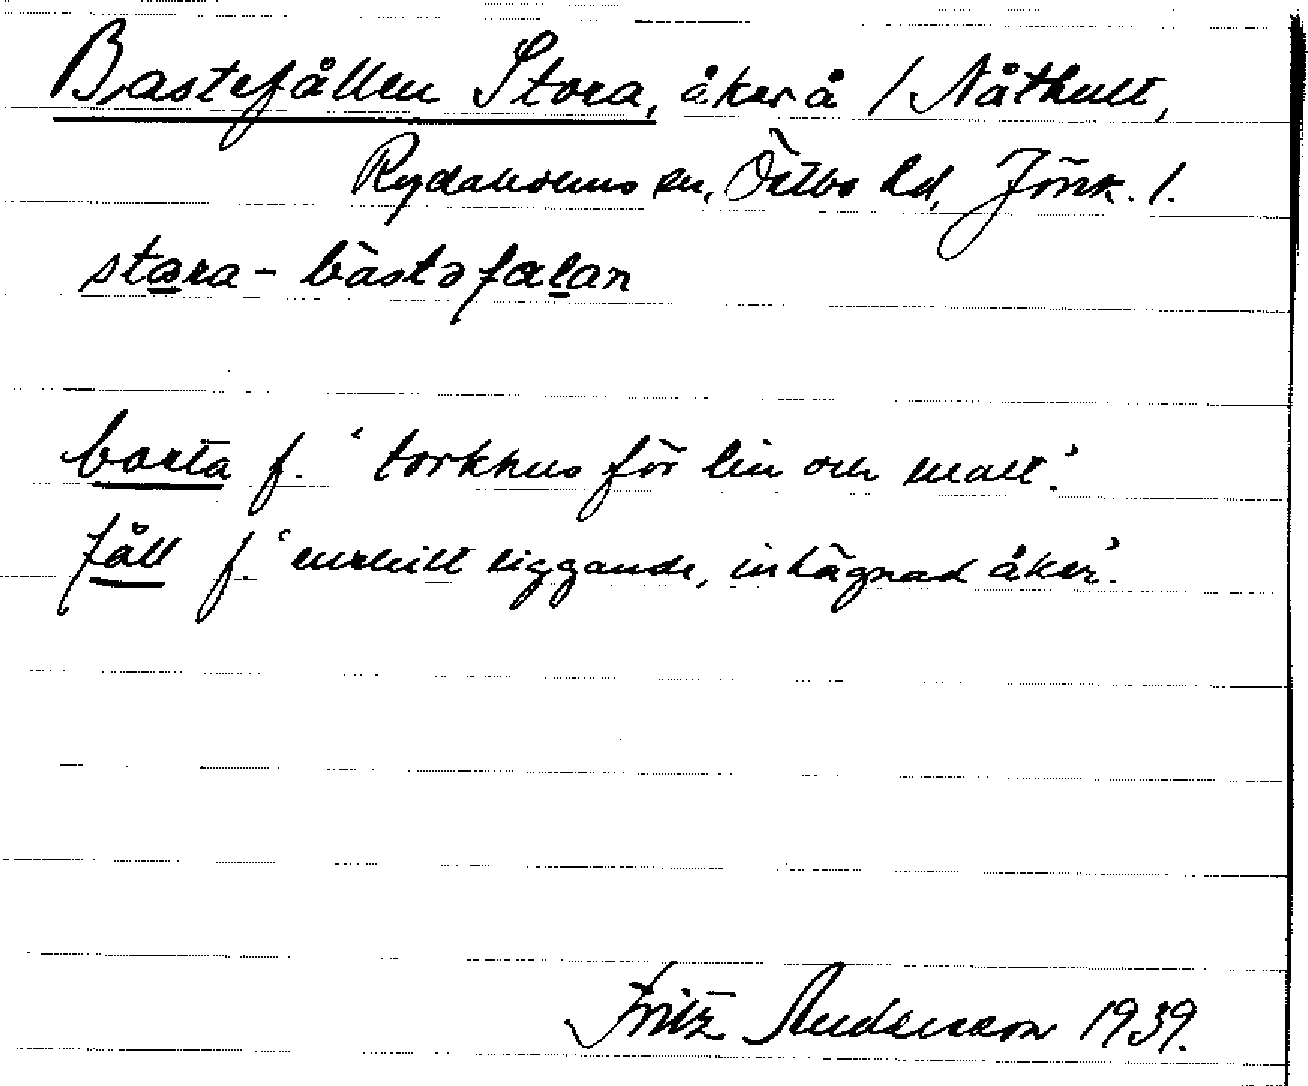 Bastefållen Stora, åker å /Nåthult,
Rydaholms sn, Östbo hd, Jönk. l.
stora - bàstəfalan
basta f. 'torkhus för lin och malt'.
fåll f. 'enskilt liggande, inhägnad åker'.
Fritz Andersson 1939.